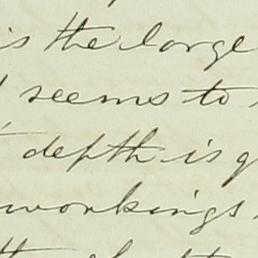 is the large
seems to
depth is
workings